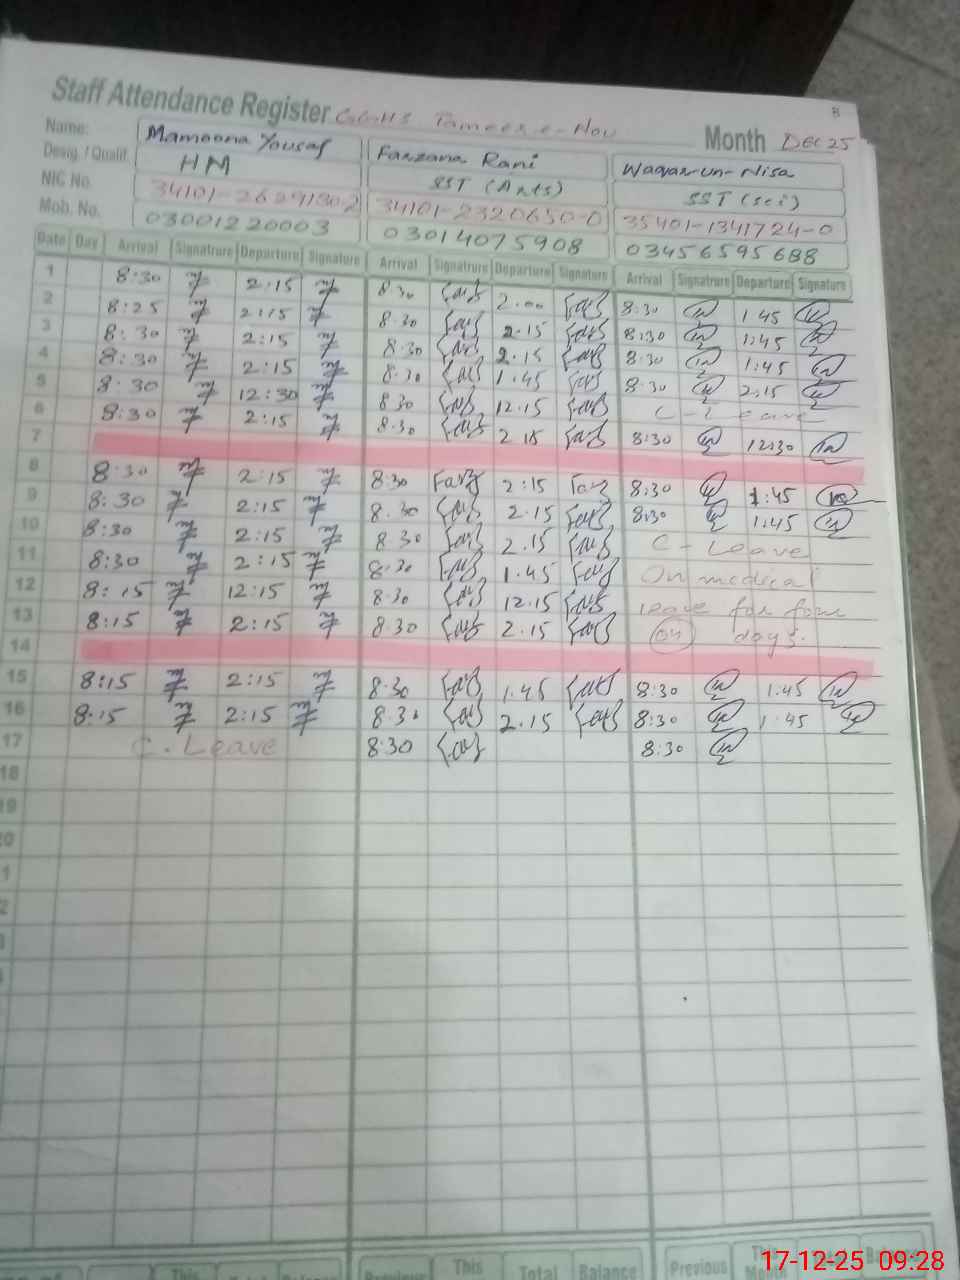 Staff Attendance Register GGHS Tameer-e-Nou Month Dec 25
8
Name: Mamoona Yousaf Farzana Rani Waqar-un-Nisa
Desig. / Qualif. HM SST (Arts) SST (sci)
NIC No. 34101-2320650-0 35401-1341724-0
Mob. No. 03001220003 03014075908 03456595688
Date Day Arrival Signatrure Departure Signature Arrival Signatrure Departure Signature Arrival Signatrure Departure Signature
1 8:30 2:15 8:30 2.00 8:30 1:45
2 8:25 2:15 8:30 2.15 8:30 1:45
3 8:30 2:15 8:30 2.15 8:30 1:45
4 8:30 2:15 8:30 1.45 8:30 2:15
5 8:30 12:30 8:30 12.15 C-Leave
6 8:30 2:15 8:30 2.15 8:30 12:30
7
8 8:30 2:15 8:30 2:15 8:30 1:45
9 8:30 2:15 8:30 2.15 8:30 1:45
10 8:30 2:15 8:30 2.15 C-Leave
11 8:30 2:15 8:30 1.45 On medical
12 8:15 12:15 8:30 12.15 leave for four
13 8:15 2:15 8:30 2.15 (04) days.
14
15 8:15 2:15 8:30 1.45 8:30 1:45
16 8:15 2:15 8:30 2.15 8:30 1:45
17 C. Leave 8:30 8:30
18
19
This Previous This Total Balance Previous This
17-12-25 09:28